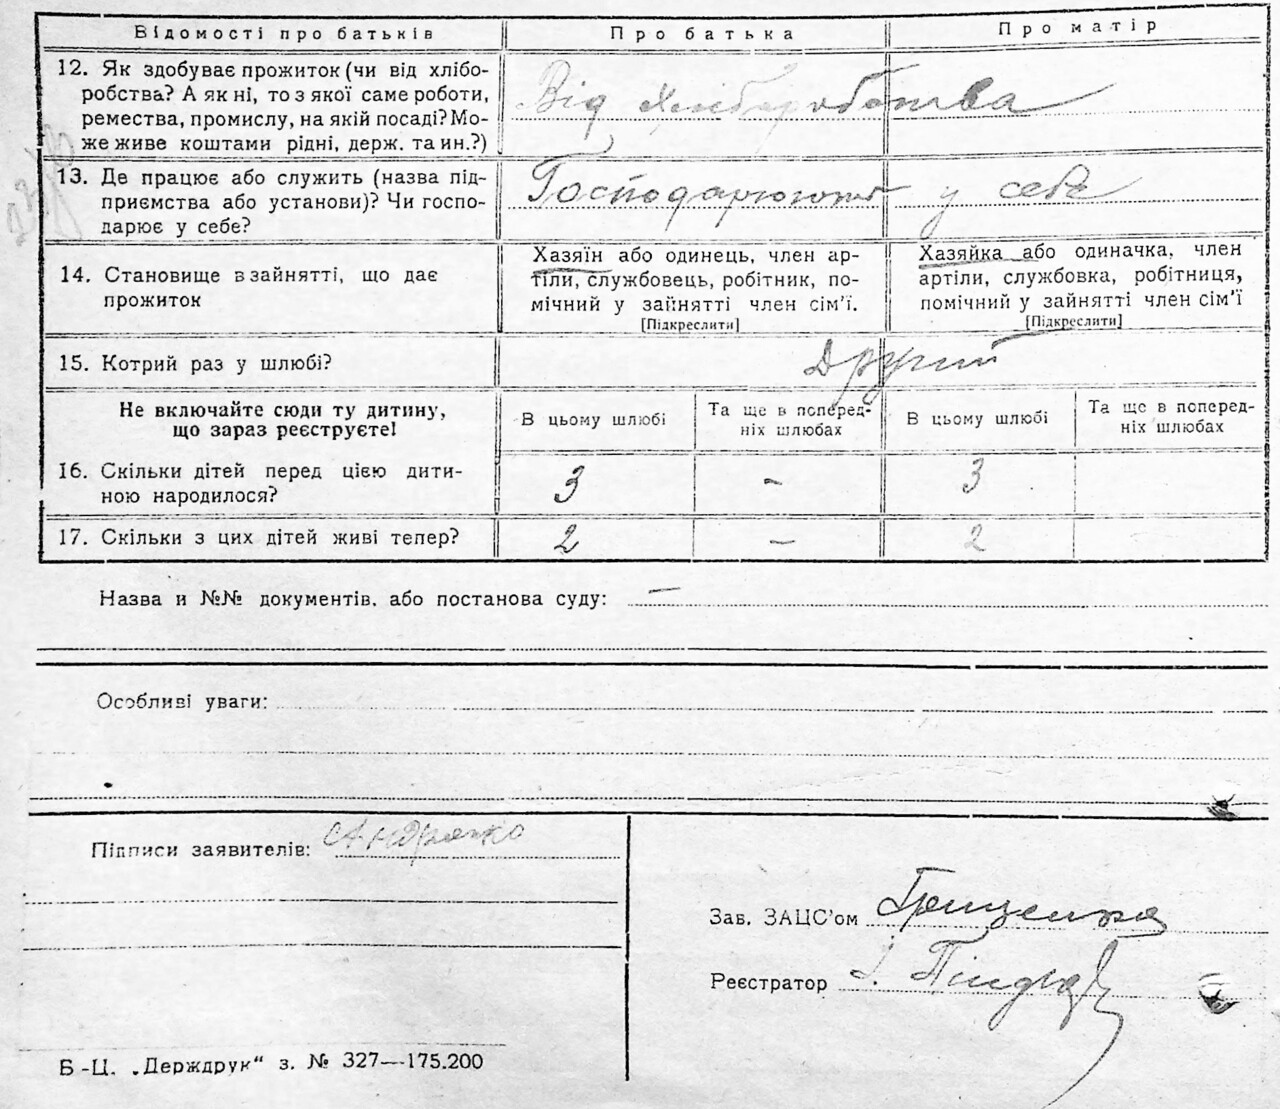 Відомості про батьків Про батька Про матір
12. Як здобуває прожиток (чи від хлібо-
робства? А як ні, то з якої саме роботи,
ремества, промислу, на якій посаді? Мо-
же живе коштами рідні, держ. та ин.?)
Від хліборобства
13. Де працює або служить (назва під-
приємства або установи)? Чи госпо-
дарює у себе?
Господарюють у себе
14. Становище в зайнятті, що дає
прожиток
Хазяїн або одинець, член ар-
тіли, службовець, робітник, по-
мічний у зайнятті член сім'ї.
[Підкреслити]
Хазяйка або одиначка, член
артіли, службовка, робітниця,
помічний у зайнятті член сім'ї
[Підкреслити]
15. Котрий раз у шлюбі? Другий
Не включайте сюди ту дитину,
що зараз реєструєте!
В цьому шлюбі
Та ще в поперед-
ніх шлюбах
В цьому шлюбі
Та ще в поперед-
ніх шлюбах
16. Скільки дітей перед цією дити-
ною народилося?
3 - 3
17. Скільки з цих дітей живі тепер? 2 — 2
Назва и №№ документів, або постанова суду: —
Особливі уваги:
Підписи заявителів:
Зав. ЗАЦС'ом Грищенко
Реєстратор
Б-Ц. „Держдрук“ з. № 327—175.200